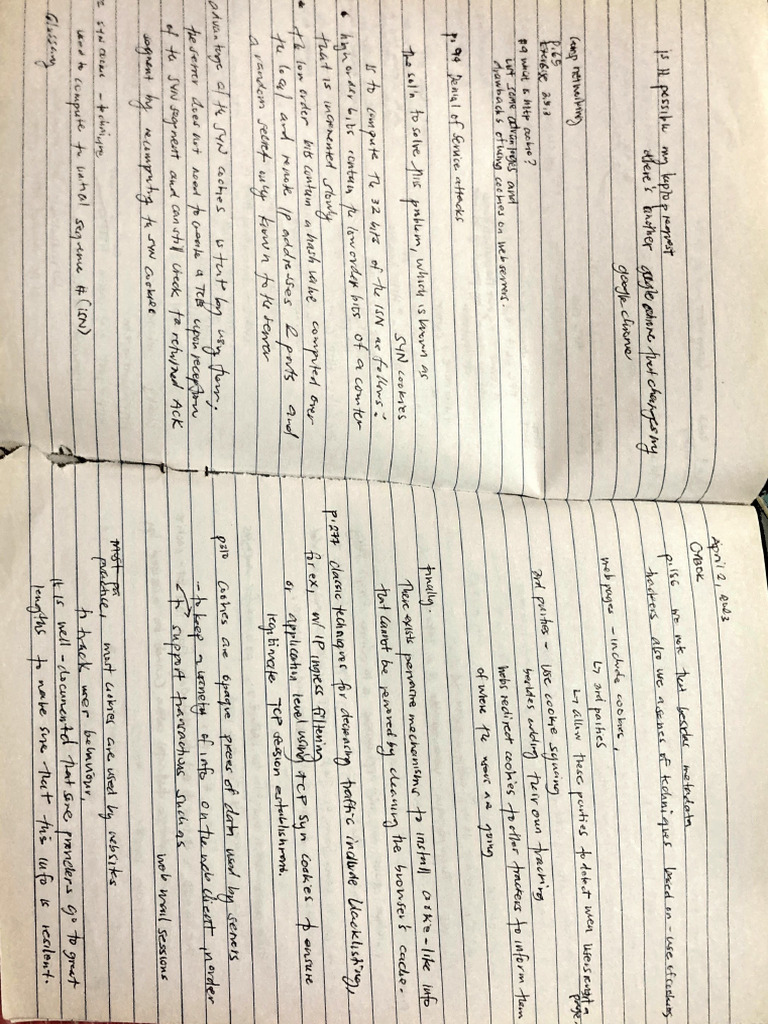 is it possible my laptop request
where's another google chrome that changes my
google chrome
Comp networking
p.65
Exercise 3.9.3
#9 what is http cookie?
List some advantages and
drawbacks of using cookies on web servers.
p.94 Denial of Service attacks
The sol'n to solve this problem, which is known as
SYN cookies
is to compute the 32 bits of the ISN as follows:
• high order bits contain the low order bits of a counter
that is incremented slowly
• the low order bits contain a hash value computed over
the local and remote ip addresses & ports and
a random secret only known to the server
advantage of the SYN cookies is that by using them,
the server does not need to create a TCB upon reception
of the SYN segment and can still check the returned ACK
segment by recomputing the SYN cookie
SYN cookie - technique
used to compute the initial sequence # (ISN)
Glossary
April 2, 2023
p.186 we note that besides metadata
trackers also use a series of techniques based on - use of cookies
webpages - include cookies,
↳ 3rd parties
↳ allow these parties to detect when users visit a
page.
3rd parties - use cookie syncing
besides adding their own tracking
hobs redirect cookies to other trackers to inform them
of where the users are going
finally.
There exists pervasive mechanisms to install cookie-like info
that cannot be removed by cleaning the browser's cache.
p.277 classic techniques for decreasing traffic include blacklisting,
for ex, w/ IP ingress filtering
or application level using TCP syn cookies to ensure
legitimate TCP session establishment.
p510 cookies are opaque pieces of data used by servers
- to keep a variety of info on the web client in order
to support transactions such as
web mail sessions
Most pa
practice, most cookies are used by websites
to track user behaviour,
it is well-documented that some providers go to great
lengths to make sure that this info is resilient.